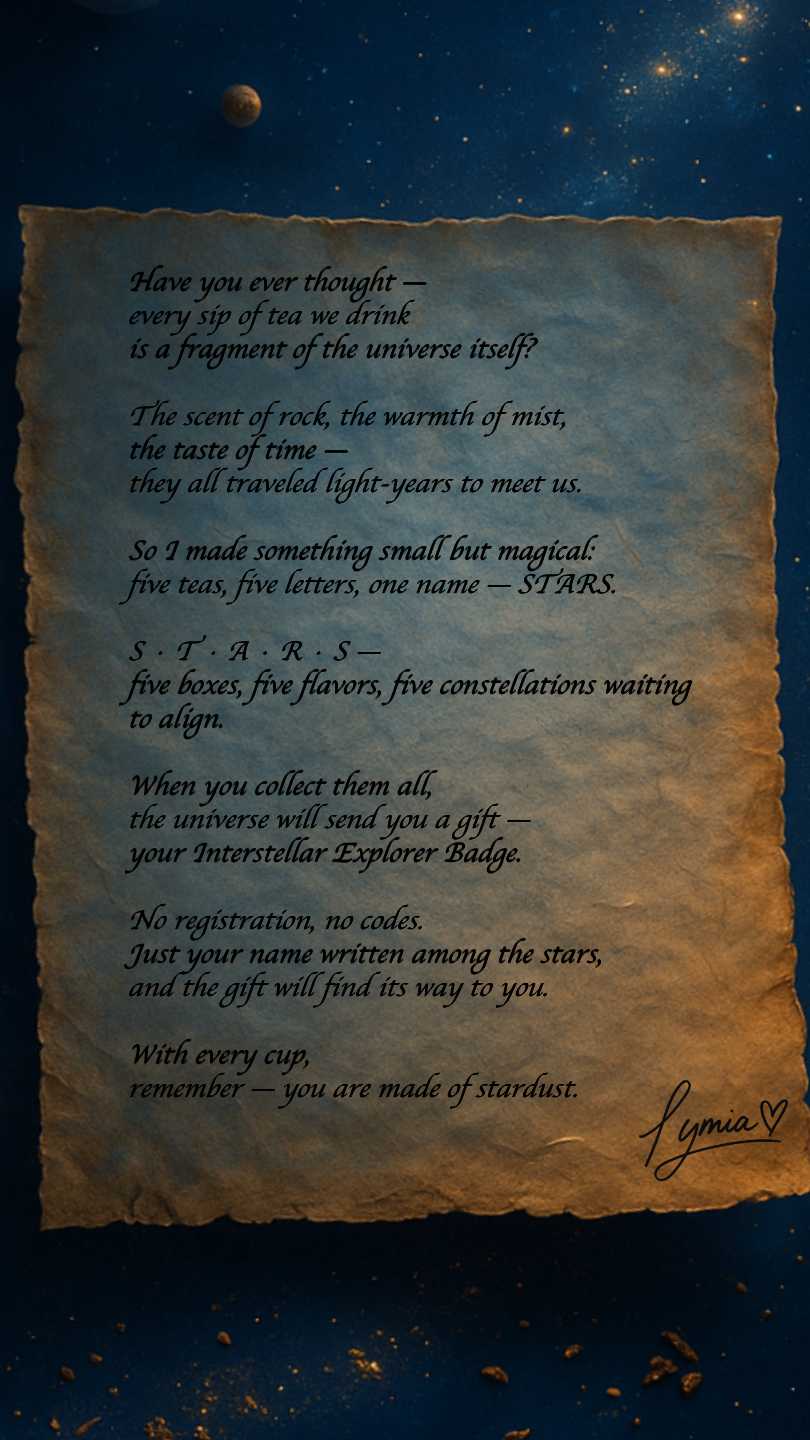 Have you ever thought —
every sip of tea we drink
is a fragment of the universe itself?
The scent of rock, the warmth of mist,
the taste of time —
they all traveled light-years to meet us.
So I made something small but magical:
five teas, five letters, one name — STARS.
S · T · A · R · S —
five boxes, five flavors, five constellations waiting
to align.
When you collect them all,
the universe will send you a gift —
your Interstellar Explorer Badge.
No registration, no codes.
Just your name written among the stars,
and the gift will find its way to you.
With every cup,
remember — you are made of stardust.
Lymia♡